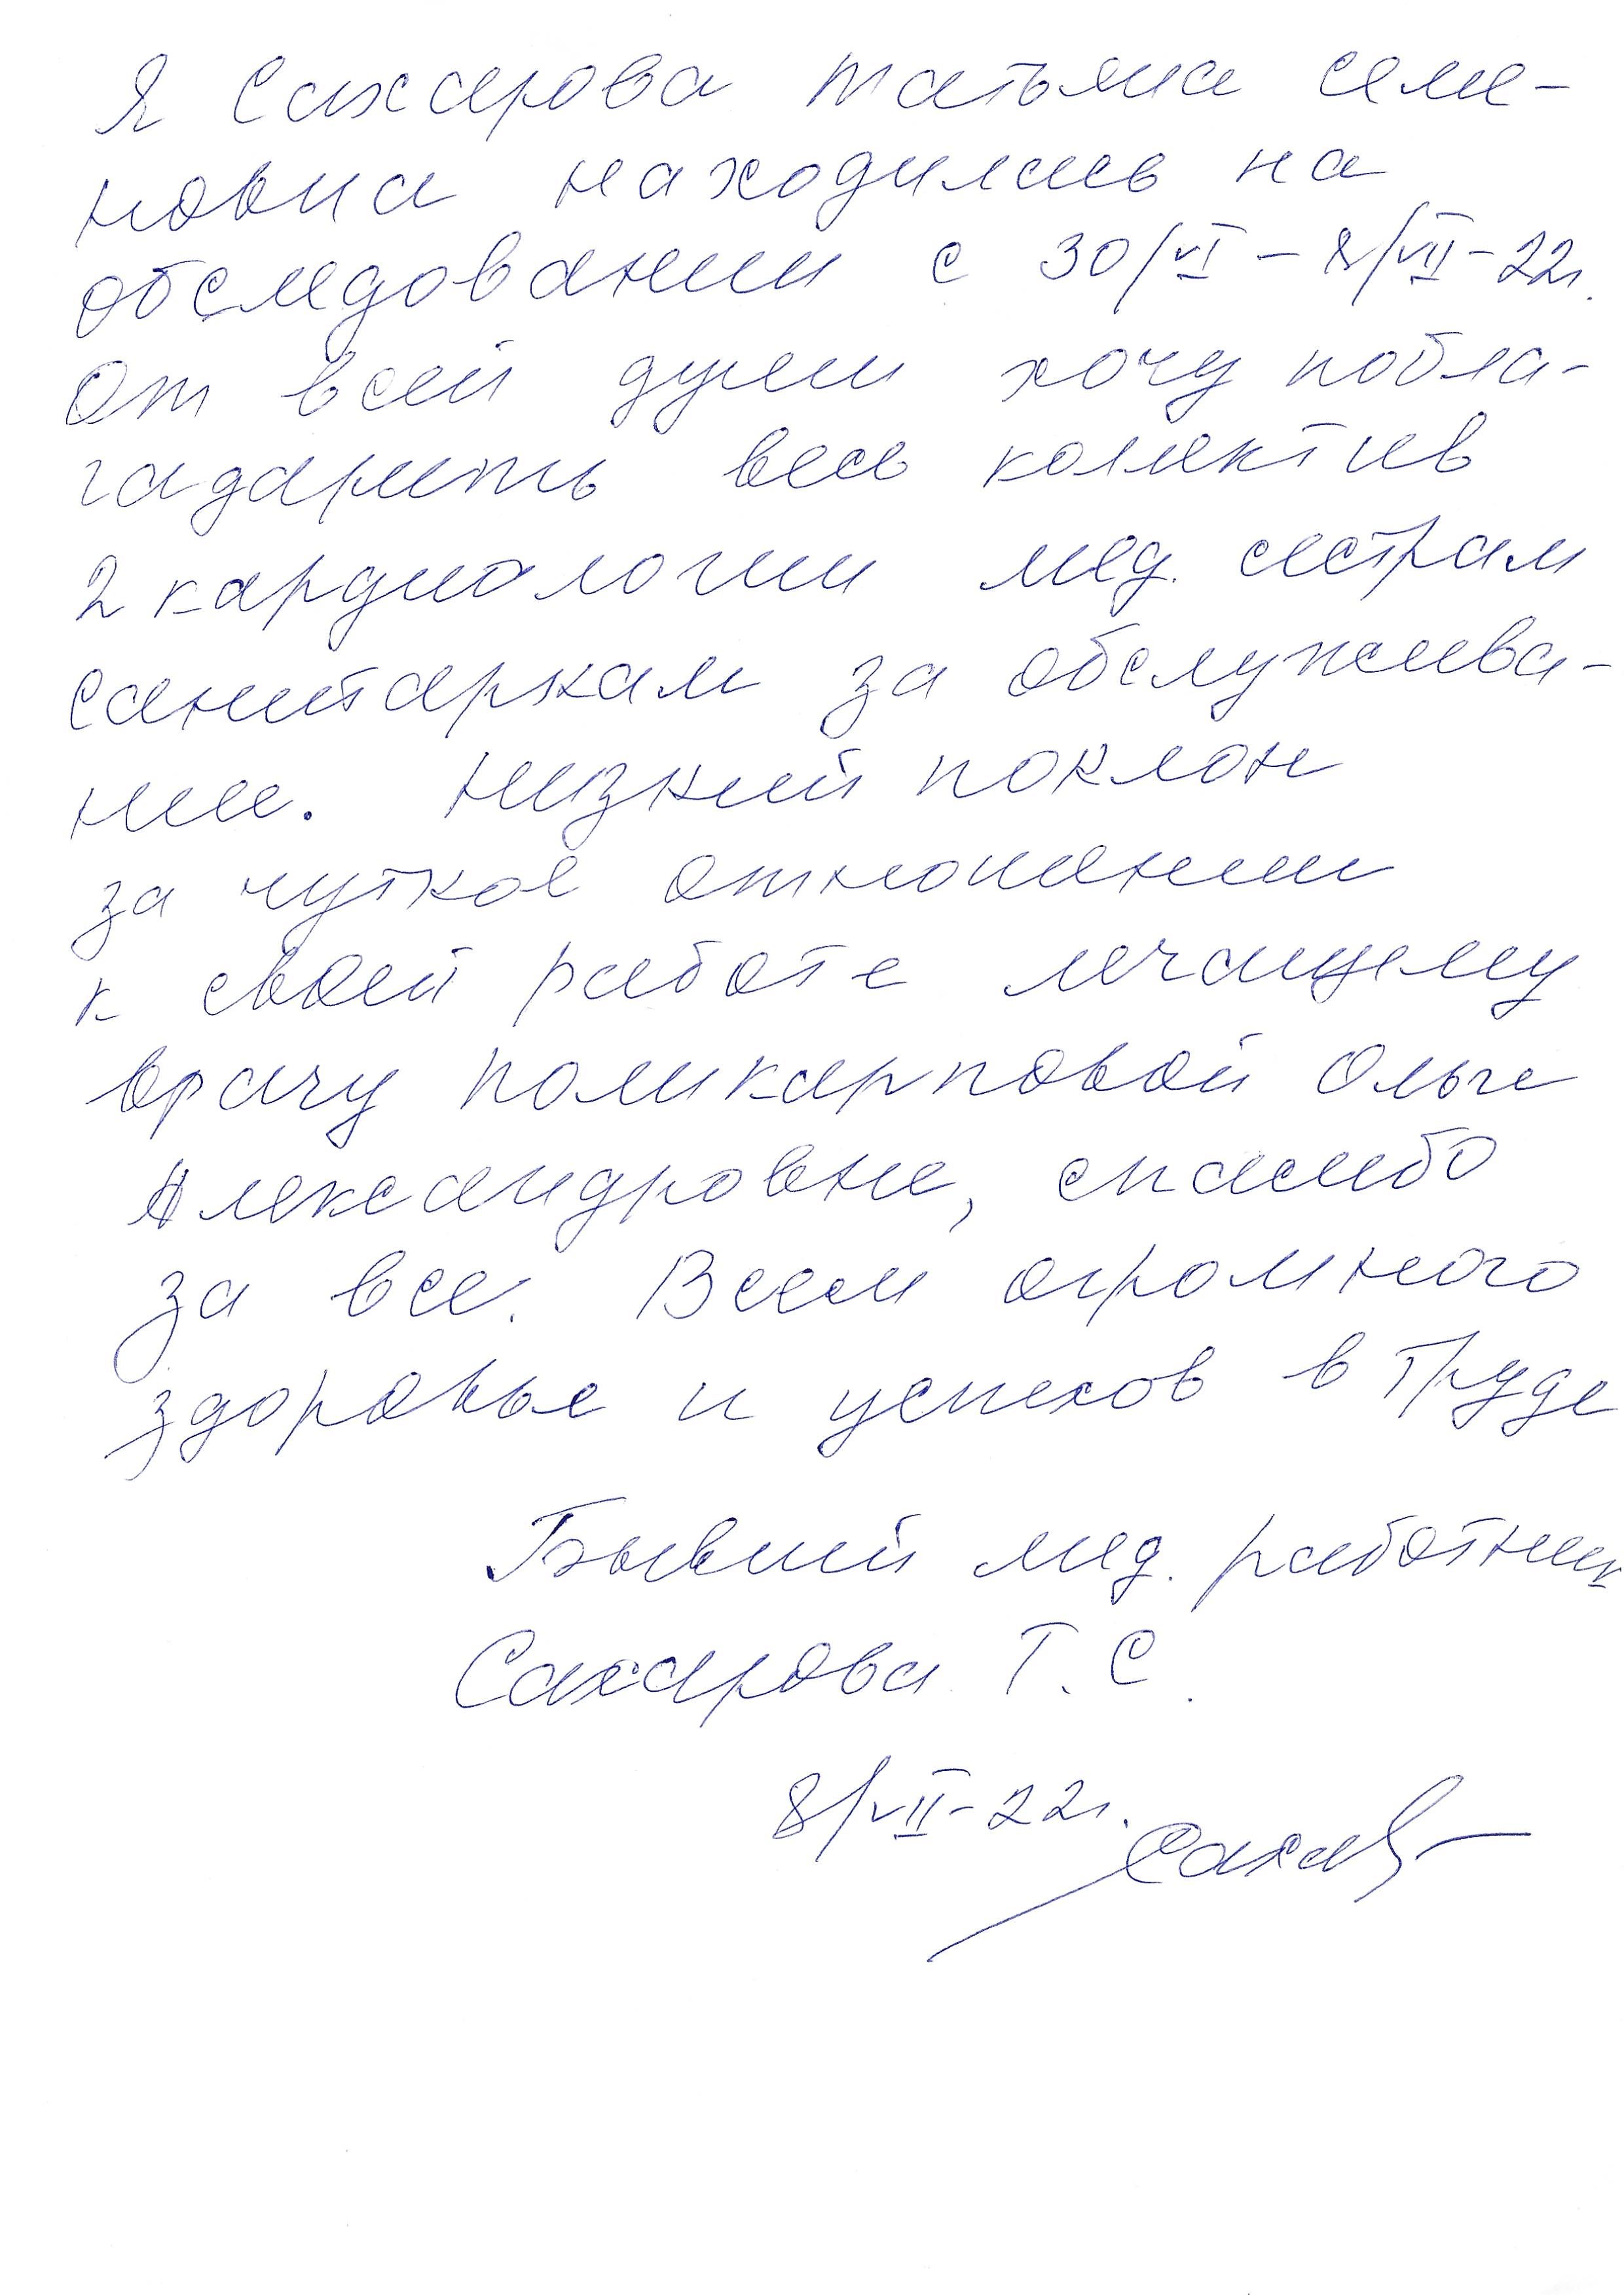 Я Сахарова Татьяна Семе-
новна находилась на
обследовании с 30/VI - 8/VII-22г.
От всей души хочу побла-
гадарить весь колектив
2 кардиологии мед. сестрам
санитаркам за обслужива-
нии. Низкий поклон
за чуткое отношении
к своей работе лечащему
врачу Поликарповой Ольге
Александровне, спасибо
за все. Всем огромного
здоровье и успехов в труде
Бывший мед. работник
Сахарова Т. С.
8/VII-22г.